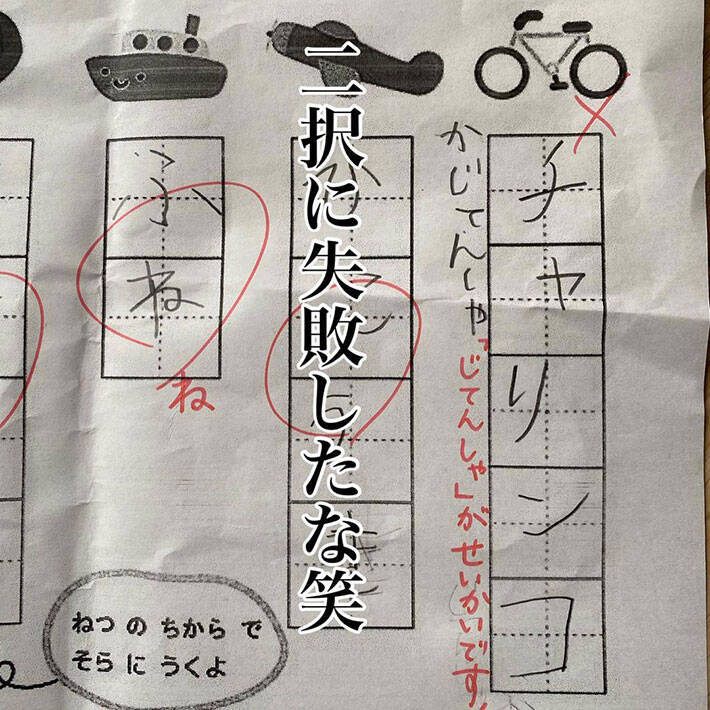 二択に失敗したな笑
チャリンコ
かじてんしゃ
「じてんしゃ」がせいかいです。
ふね
ね
ねつ の ちから で
そら に うくよ